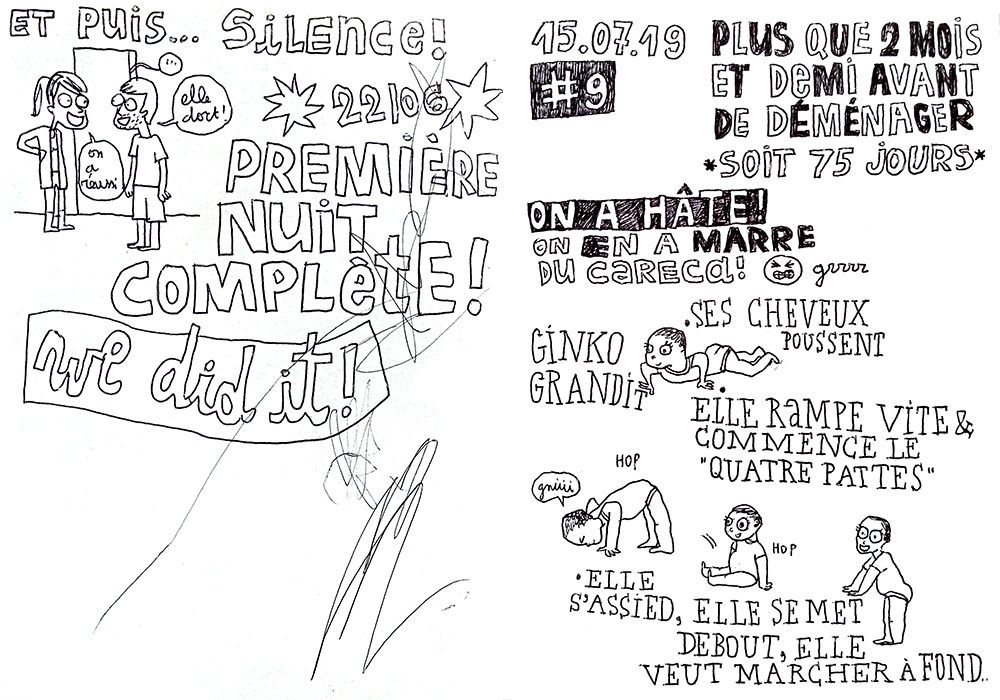 ET PUIS... SILENCE!
...
elle
dort!
on
a
réussi
22/06
PREMIÈRE
NUIT
COMPLÈTE!
we did it!
15.07.19
#9
PLUS QUE 2 MOIS
ET DEMI AVANT
DE DÉMÉNAGER
*SOIT 75 JOURS*
ON A HÂTE!
ON EN A MARRE
DU CARECA! grrrr
GINKO
GRANDIT
.SES CHEVEUX
POUSSENT
.
ELLE RAMPE VITE &
COMMENCE LE
"QUATRE PATTES"
HOP
gniiii
HOP
.ELLE
S'ASSIED, ELLE SE MET
DEBOUT, ELLE
VEUT MARCHER À FOND..